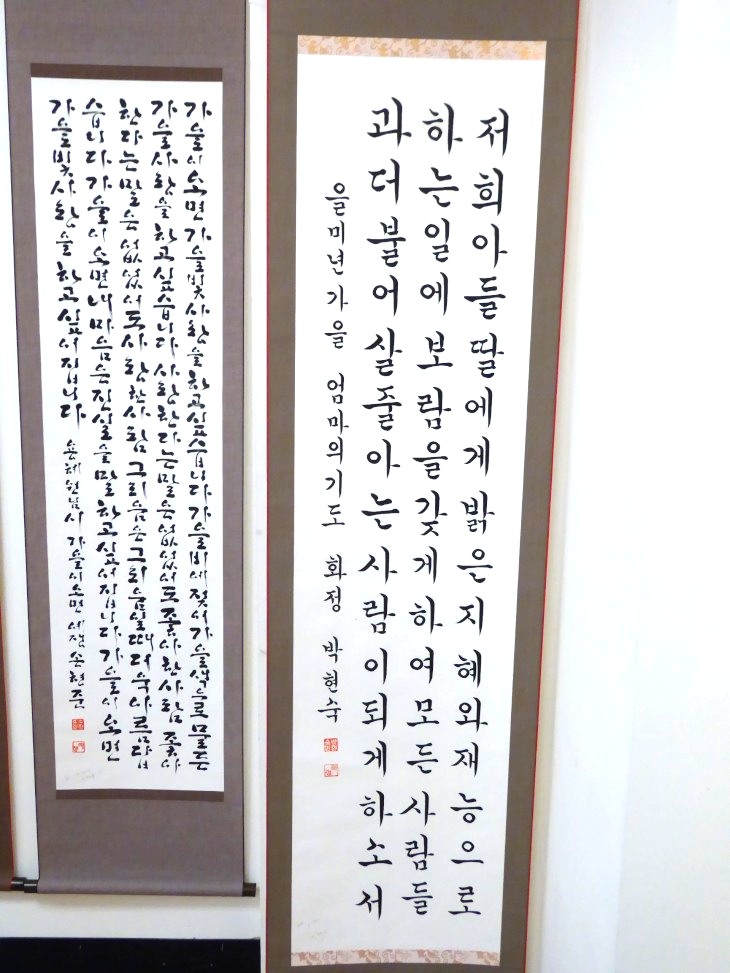 저희아들딸에게밝은지혜와재능으로
하는일에보람을갖게하여모든사람들
과더불어살줄아는사람이되게하소서
을미년가을 엄마의기도 화정 박현숙
가을이오면가을빛사랑을하고싶습니다가을비에젖어가을색으로물든
가을사랑을하고싶습니다사랑한다는말은없었어도좋아한사람좋아
한다는말은없었어도사랑한사람그리움은그리움일때더욱아름답
습니다가을이오면내마음은진실을말하고싶어집니다가을이오면
가을빛사랑을하고싶어집니다 용혜원님시 가을이오면 손현준